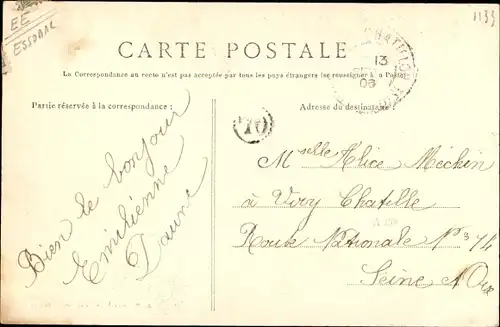 EE
ESSONNE
1133
CARTE POSTALE
La Correspondance au recto n'est pas acceptée par tous les pays étrangers (se renseigner à la Poste)
Partie réservée à la correspondance :
Adresse du destinataire :
CHATILLON
13
06
70
Bien le bonjour
Emilienne
Daune
Mselle Alice Méchin
à Viry Chatille
Route Nationale N° 374
Seine & Oise